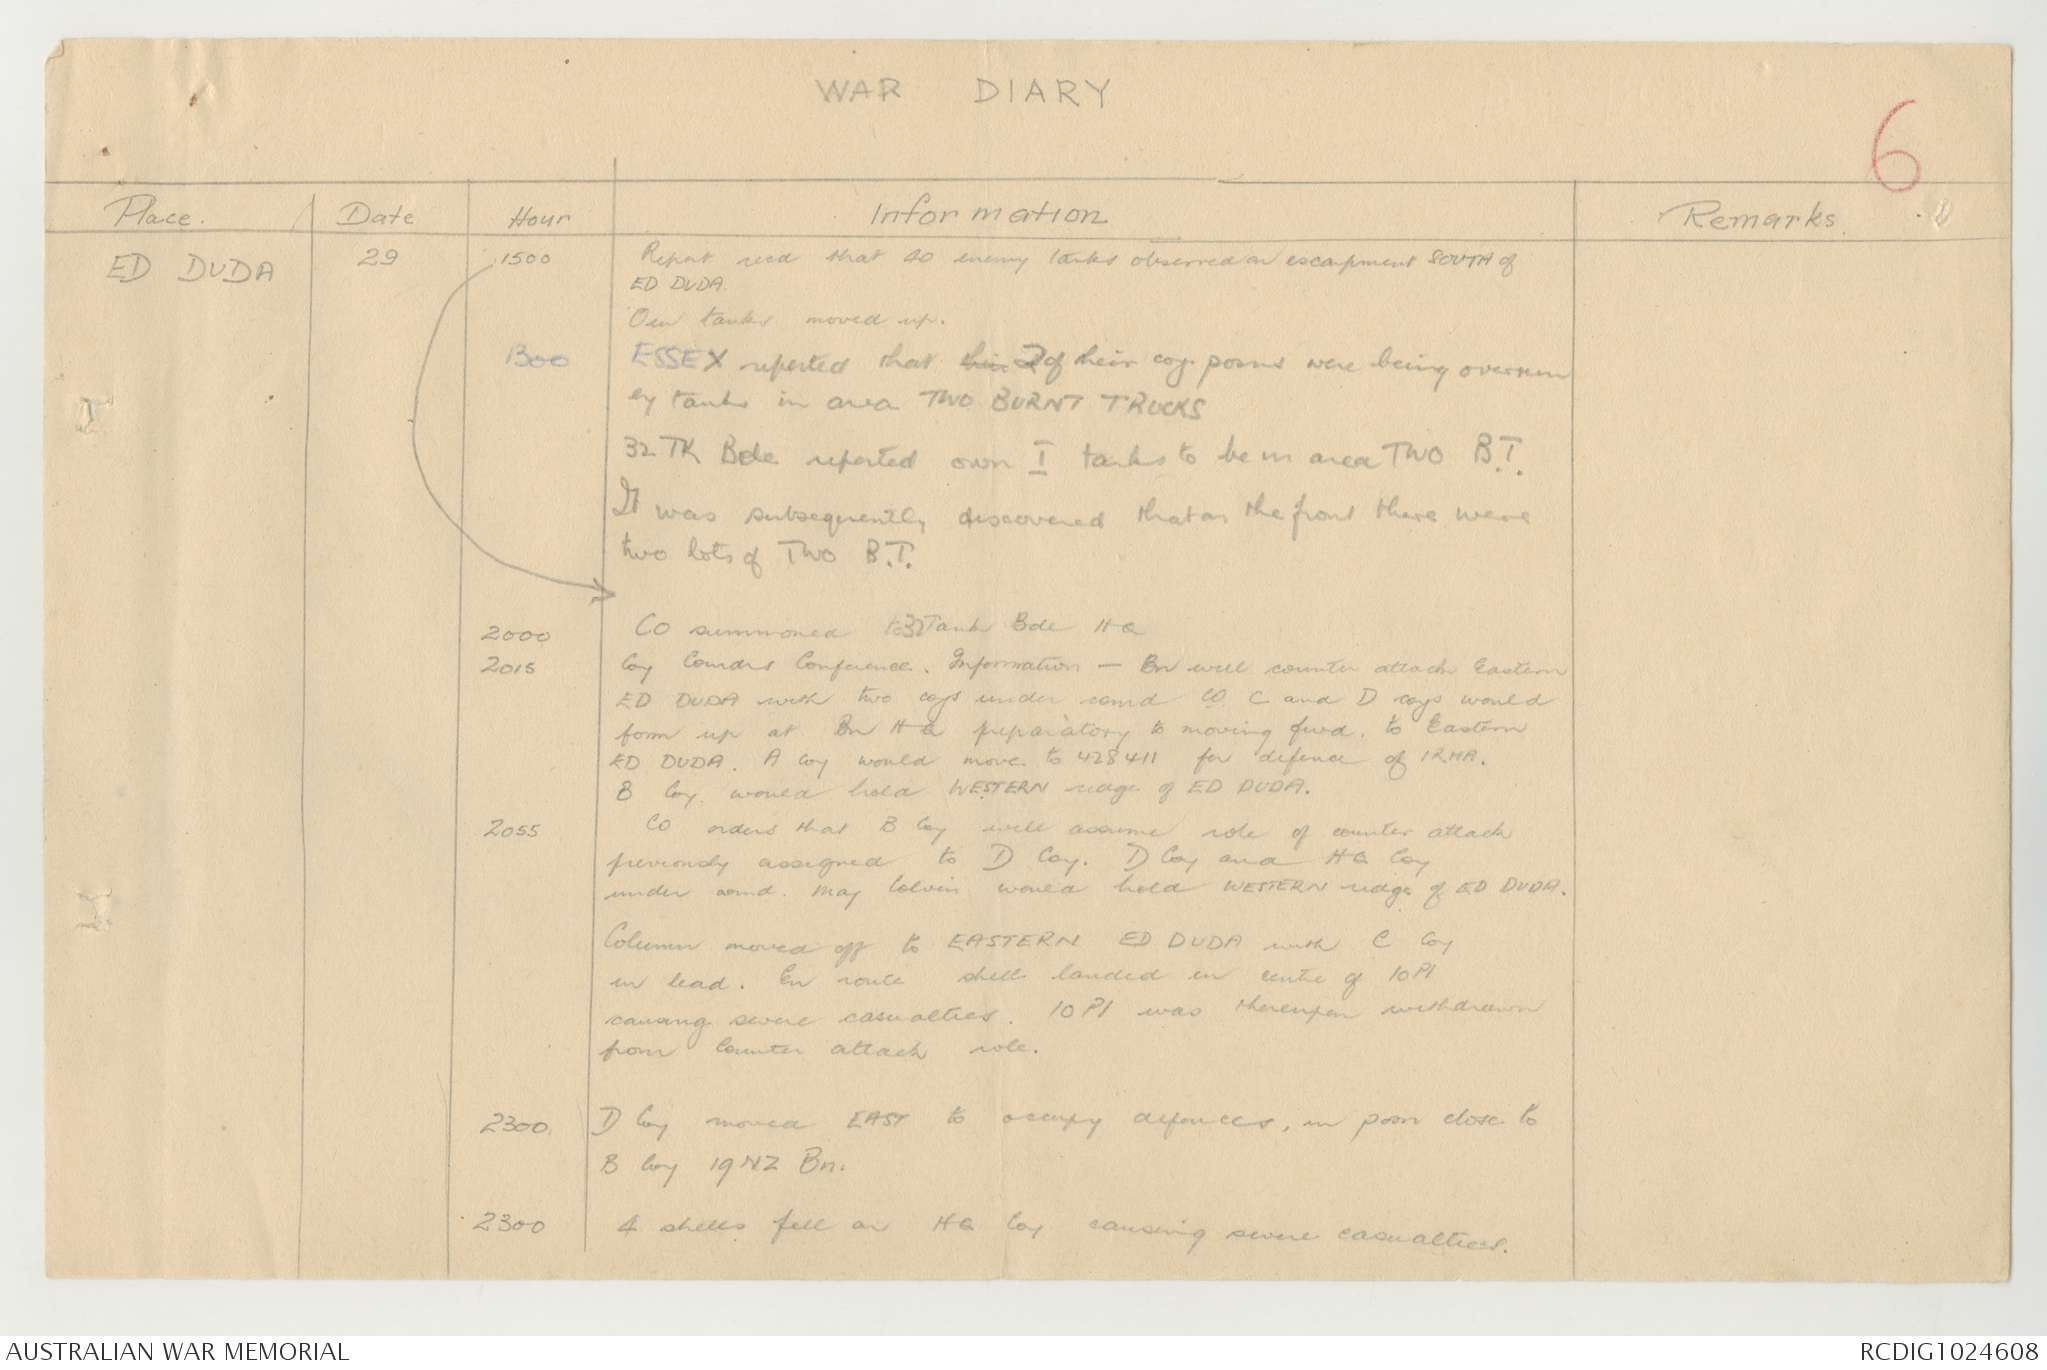 WAR DIARY
6
Place. Date Hour Information Remarks.
ED DUDA 29 1500 Report recd that 40 enemy tanks observed on escarpment SOUTH of
ED DUDA.
Our tanks moved up.
1300 ESSEX reported that their 2 of their coy posns were being overrun
by tanks in area TWO BURNT TRUCKS
32 TK Bde reported own I tanks to be in area TWO B.T.
It was subsequently discovered that on the front there were
two lots of TWO B.T.
2000 CO summoned to 32 Tank Bde HQ
2015 Coy Comdrs Conference. Information — Bn will counter attack Eastern
ED DUDA with two coys under comd CO. C and D coys would
form up at Bn HQ preparatory to moving fwd. to Eastern
ED DUDA. A Coy would move to 428411 for defence of 1RHA.
B Coy. would hold WESTERN ridge of ED DUDA.
2055 CO orders that B Coy will assume role of counter attack
previously assigned to D Coy. D Coy and HQ Coy
under comd. Maj Colvin would hold WESTERN ridge of ED DUDA.
Column moved off to EASTERN ED DUDA with C Coy
in lead. En route shell landed in centre of 10 Pl
causing severe casualties. 10 Pl was thereupon withdrawn
from counter attack role.
2300 D Coy moved EAST to occupy defences, in posn close to
B Coy 19 NZ Bn.
2300 4 shells fell on HQ Coy causing severe casualties.
AUSTRALIAN WAR MEMORIAL RCDIG1024608